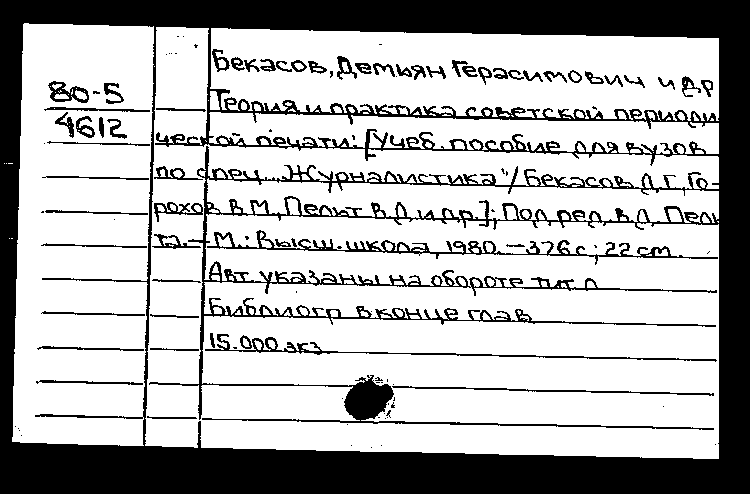 Бекасов, Демьян Герасимович и др
80-5
4612
Теория и практика советской периоди
ческой печати: [Учеб. пособие для вузов
по спец. „Журналистика"/ Бекасов Д.Г., Го-
рохов В.М., Пельт В.Д. и др.]; Под ред. В.Д. Пель
та. – М.: Высш. школа, 1980. – 376 с; 22 см.
Авт. указаны на обороте тит. л
Библиогр в конце глав
15.000 экз